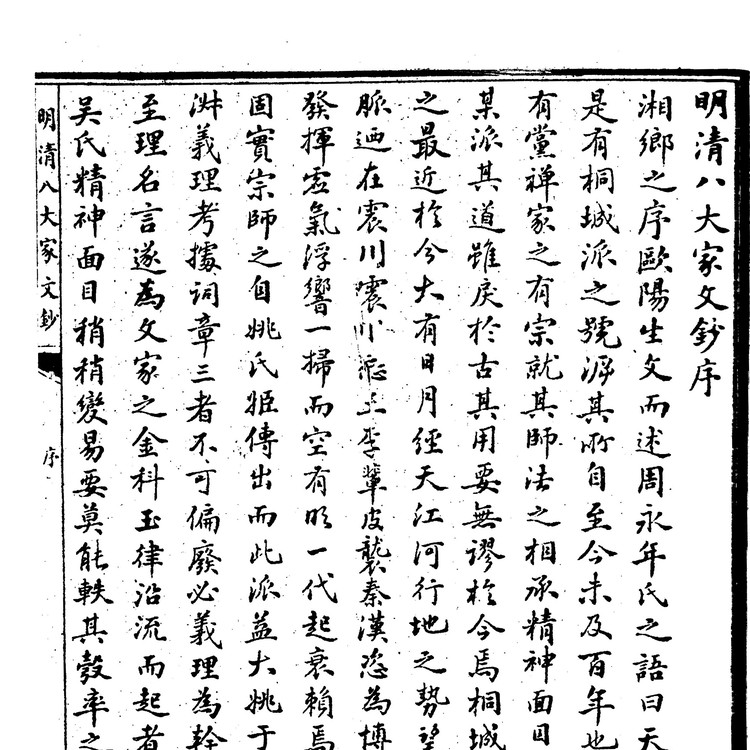 明清八大家文鈔序
湘鄉之序歐陽生文而述周永年氏之語曰天
是有桐城派之號溯其所自至今未及百年也
有黨禪家之有宗就其師法之相承精神面目
某派其道雖戾於古其用要無謬於今焉桐城
之最近於今大有日月經天江河行地之勢望
脈迺在震川震川崧上李輩皮襲秦漢恣為博
發揮虛氣浮響一掃而空有明一代起衰賴焉
固實宗師之自姚氏姬傳出而此派益大姚于
淋義理考據詞章三者不可偏廢必義理為幹
至理名言遂為文家之金科玉律沿流而起者
吳氏精神面目稍稍變易要莫能軼其彀率之
明清八大家文鈔
序